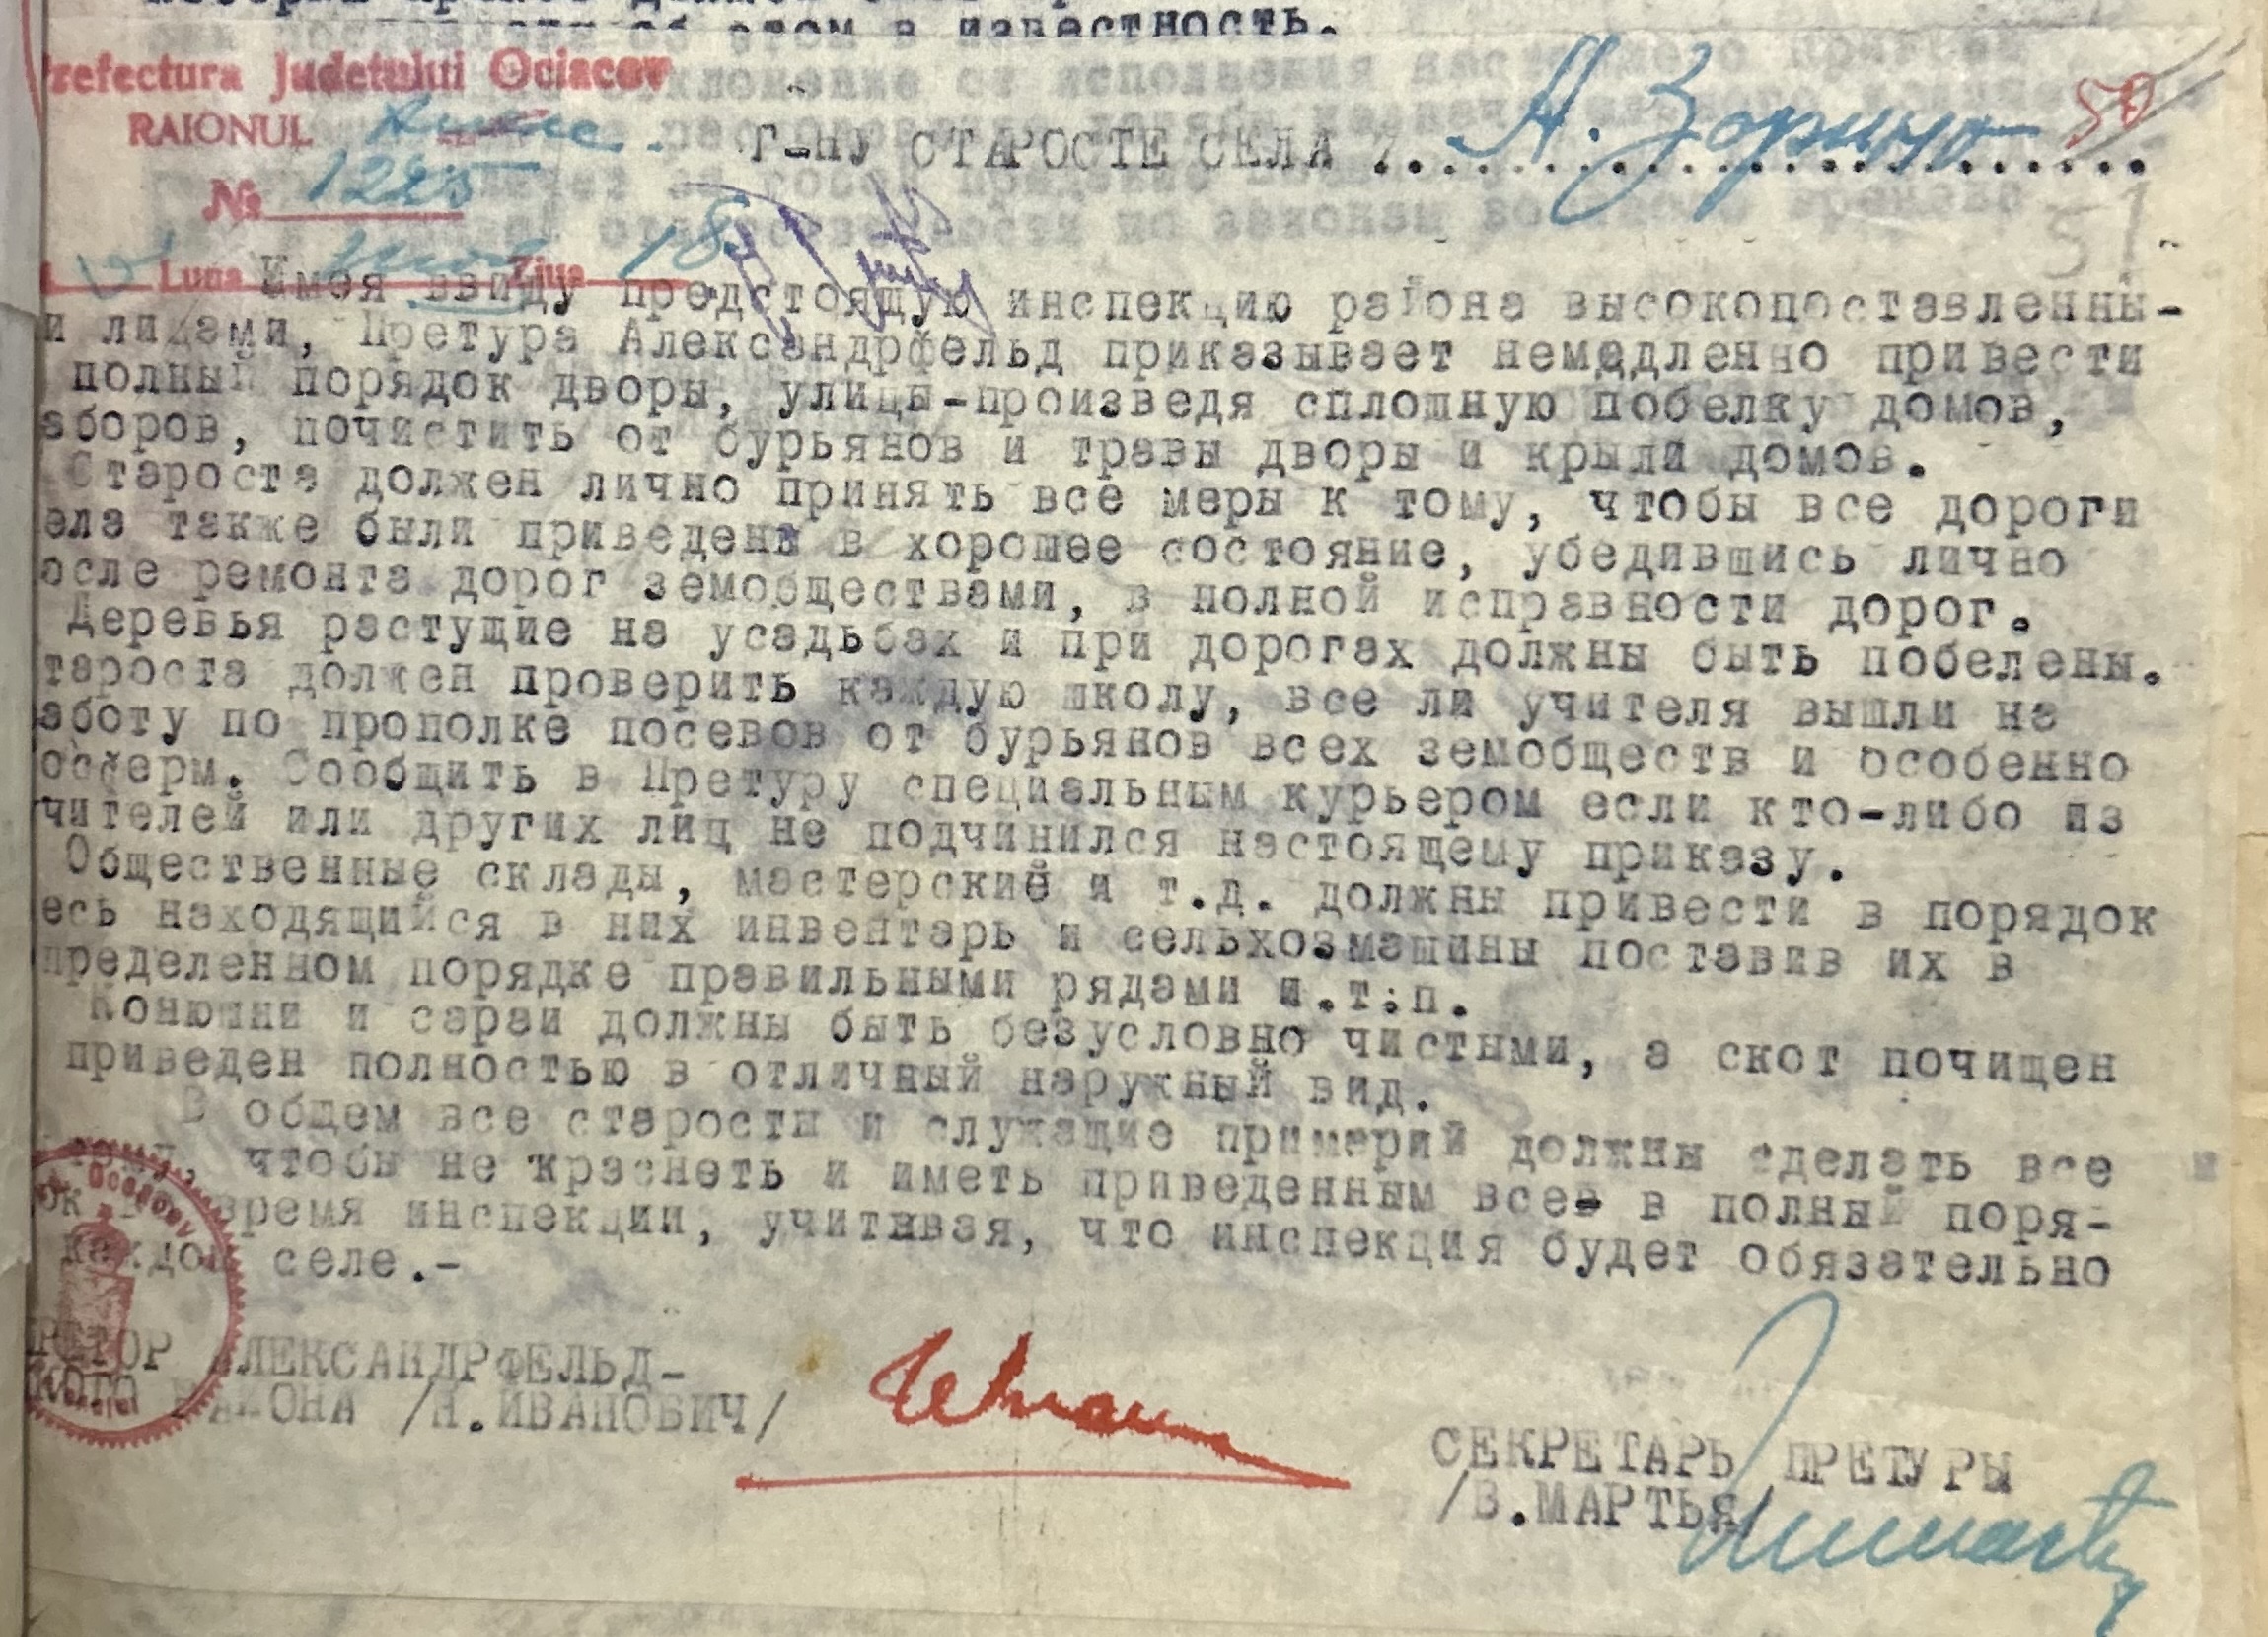 об этом в известность.
Prefectura Judetului Ociacov
RAIONUL
Г-НУ СТАРОСТЕ СЕЛА А. Зорино 50
№ 1225
51
Luna Ziua 18
Имея ввиду предстоящую инспекцию района высокопоставленны-
и лицами, Претура Александрфельд приказывает немедленно привести
полный порядок дворы, улицы-произведя сплошную побелку домов,
аборов, почистить от бурьянов и травы дворы и крыли домов.
Староста должен лично принять все меры к тому, чтобы все дороги
ела также были приведены в хорошее состояние, убедившись лично
осле ремонта дорог земобществами, в полной исправности дорог.
Деревья растущие на усадьбах и при дорогах должны быть побелены.
тароста должен проверить каждую школу, все ли учителя вышли на
аботу по прополке посевов от бурьянов всех земобществ и особенно
осферм. Сообщить в Претуру специальным курьером если кто-либо из
чителей или других лиц не подчинился настоящему приказу.
Общественные склады, мастерские и т.д. должны привести в порядок
есь находящийся в них инвентарь и сельхозмашины поставив их в
пределенном порядке правильными рядами и.т.п.
Конюшни и сараи должны быть безусловно чистыми, а скот почищен
приведен полностью в отличный наружный вид.
В общем все старосты и служащие примерий должны сделать все
чтобы не краснеть и иметь приведенным все в полный поря-
ок время инспекции, учитывая, что инспекция будет обязательно
каждом селе.-
РЕТОР АЛЕКСАНДРФЕЛЬД-
КОГО РАЙОНА /Н.ИВАНОВИЧ/
СЕКРЕТАРЬ ПРЕТУРЫ
/В.МАРТЬЯ